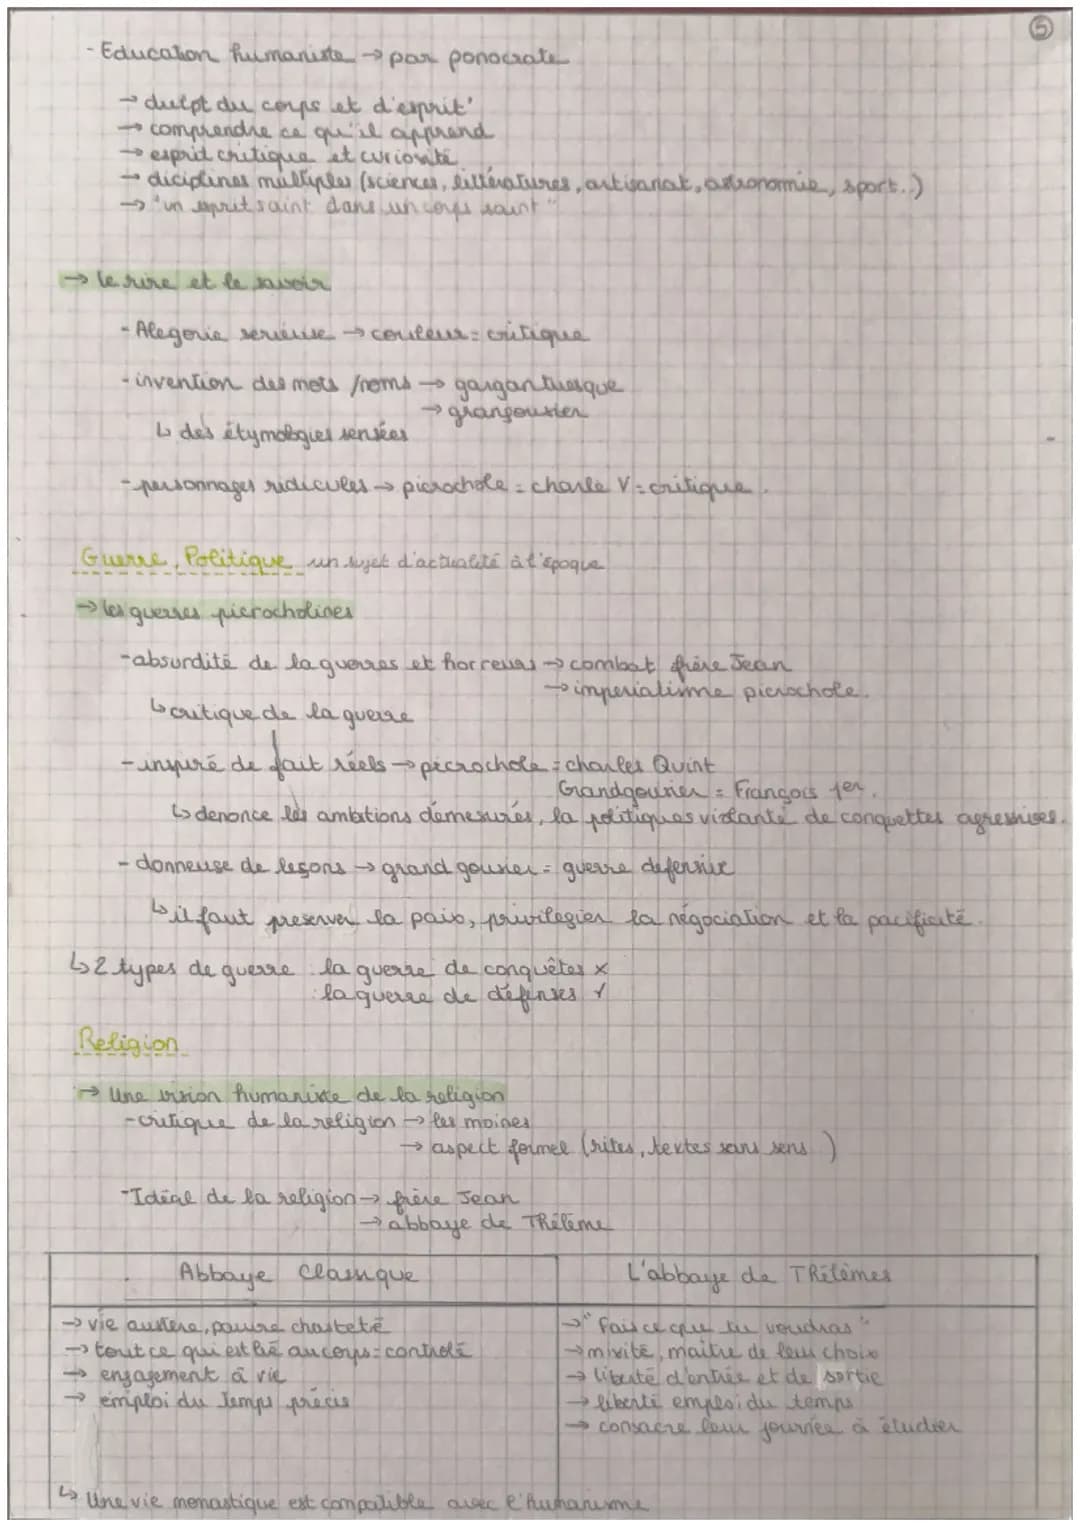 5
- Education humaniste → par ponocrate
→ dvlpt du corps et d'esprit'
→ comprendre ce qu'il apprend
→ esprit critique et curiosité
→ diciplines multiples (sciences, littératures, artisanat, astronomie, sport..)
→ "un esprit saint dans un corps saint"
→ le rire et le savoir
- Alegorie serieuse → couleur = critique
- invention des mots /noms → gargantuesque
→ grangousier
↳ des étymologies sensées
- personnages ridicules → picrochole = charle V = critique.
Guerre, Politique un sujet d'actualité à l'époque
→ les guerres picrocholines
- absurdité de la guerres et horreurs → combat frère Jean
→ imperialisme picrochole.
↳ critique de la guerre
- inspiré de fait réels → picrochole = charles Quint
Grandgousier = François 1er.
↳ denonce les ambitions démesurés, la politiques violante de conquettes agressives.
- donneuse de leçons → grand gousier = guerre defensive
↳ il faut preserver la paix, privilegier la négociation et la pacificité.
↳ 2 types de guerre : la guerre de conquêtes x
: la guerre de défenses ✓
Religion
→ Une vision humaniste de la religion
- critique de la religion → les moines
→ aspect formel (rites, textes sans sens )
- Idéal de la religion → frère Jean
→ abbaye de Thélème
Abbaye Classique
L'abbaye de Thélèmes
→ vie austère, pauvre chasteté
→ tout ce qui est lié au corps = controlé
→ engagement à vie
→ emploi du temps précis
→ "Fais ce que tu voudras"
→ mixité, maitre de leus choix
→ liberté d'entrée et de sortie
→ liberté emploi du temps
→ consacre leur journée à étudier
↳ Une vie monastique est compatible avec l'humanisme